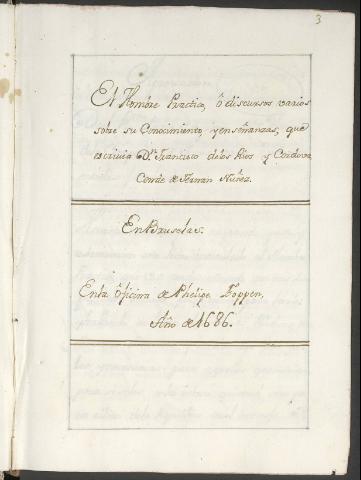 3
El Hombre Practico, ô discursos varios
sobre su Conocimiento, y enseñanzas, que
escrivia Dn. Francisco delos Rios y Cordova,
Conde de Fernan Nuñez.
En Bruselas.
Enla ôficina de Phelipe Foppen,
Año de 1686.